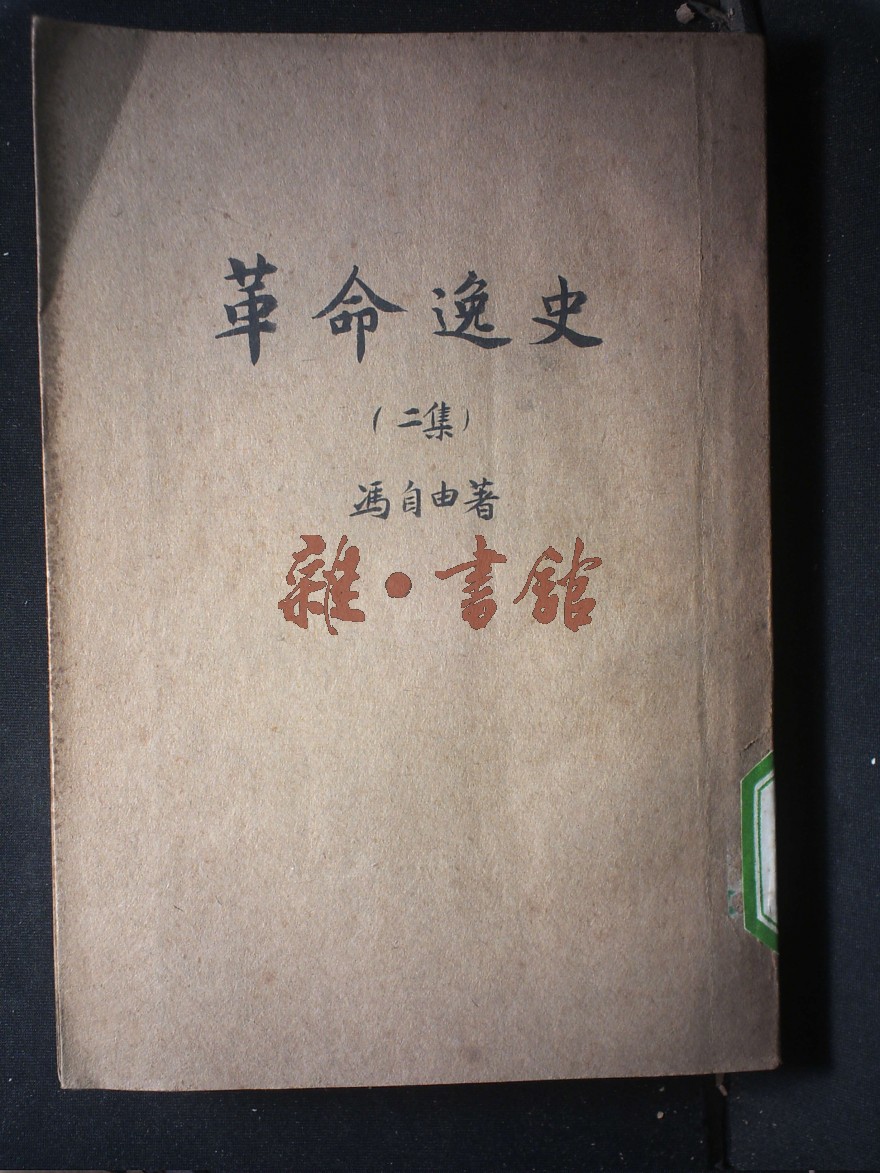 革命逸史
（二集）
馮自由著
雜·書館